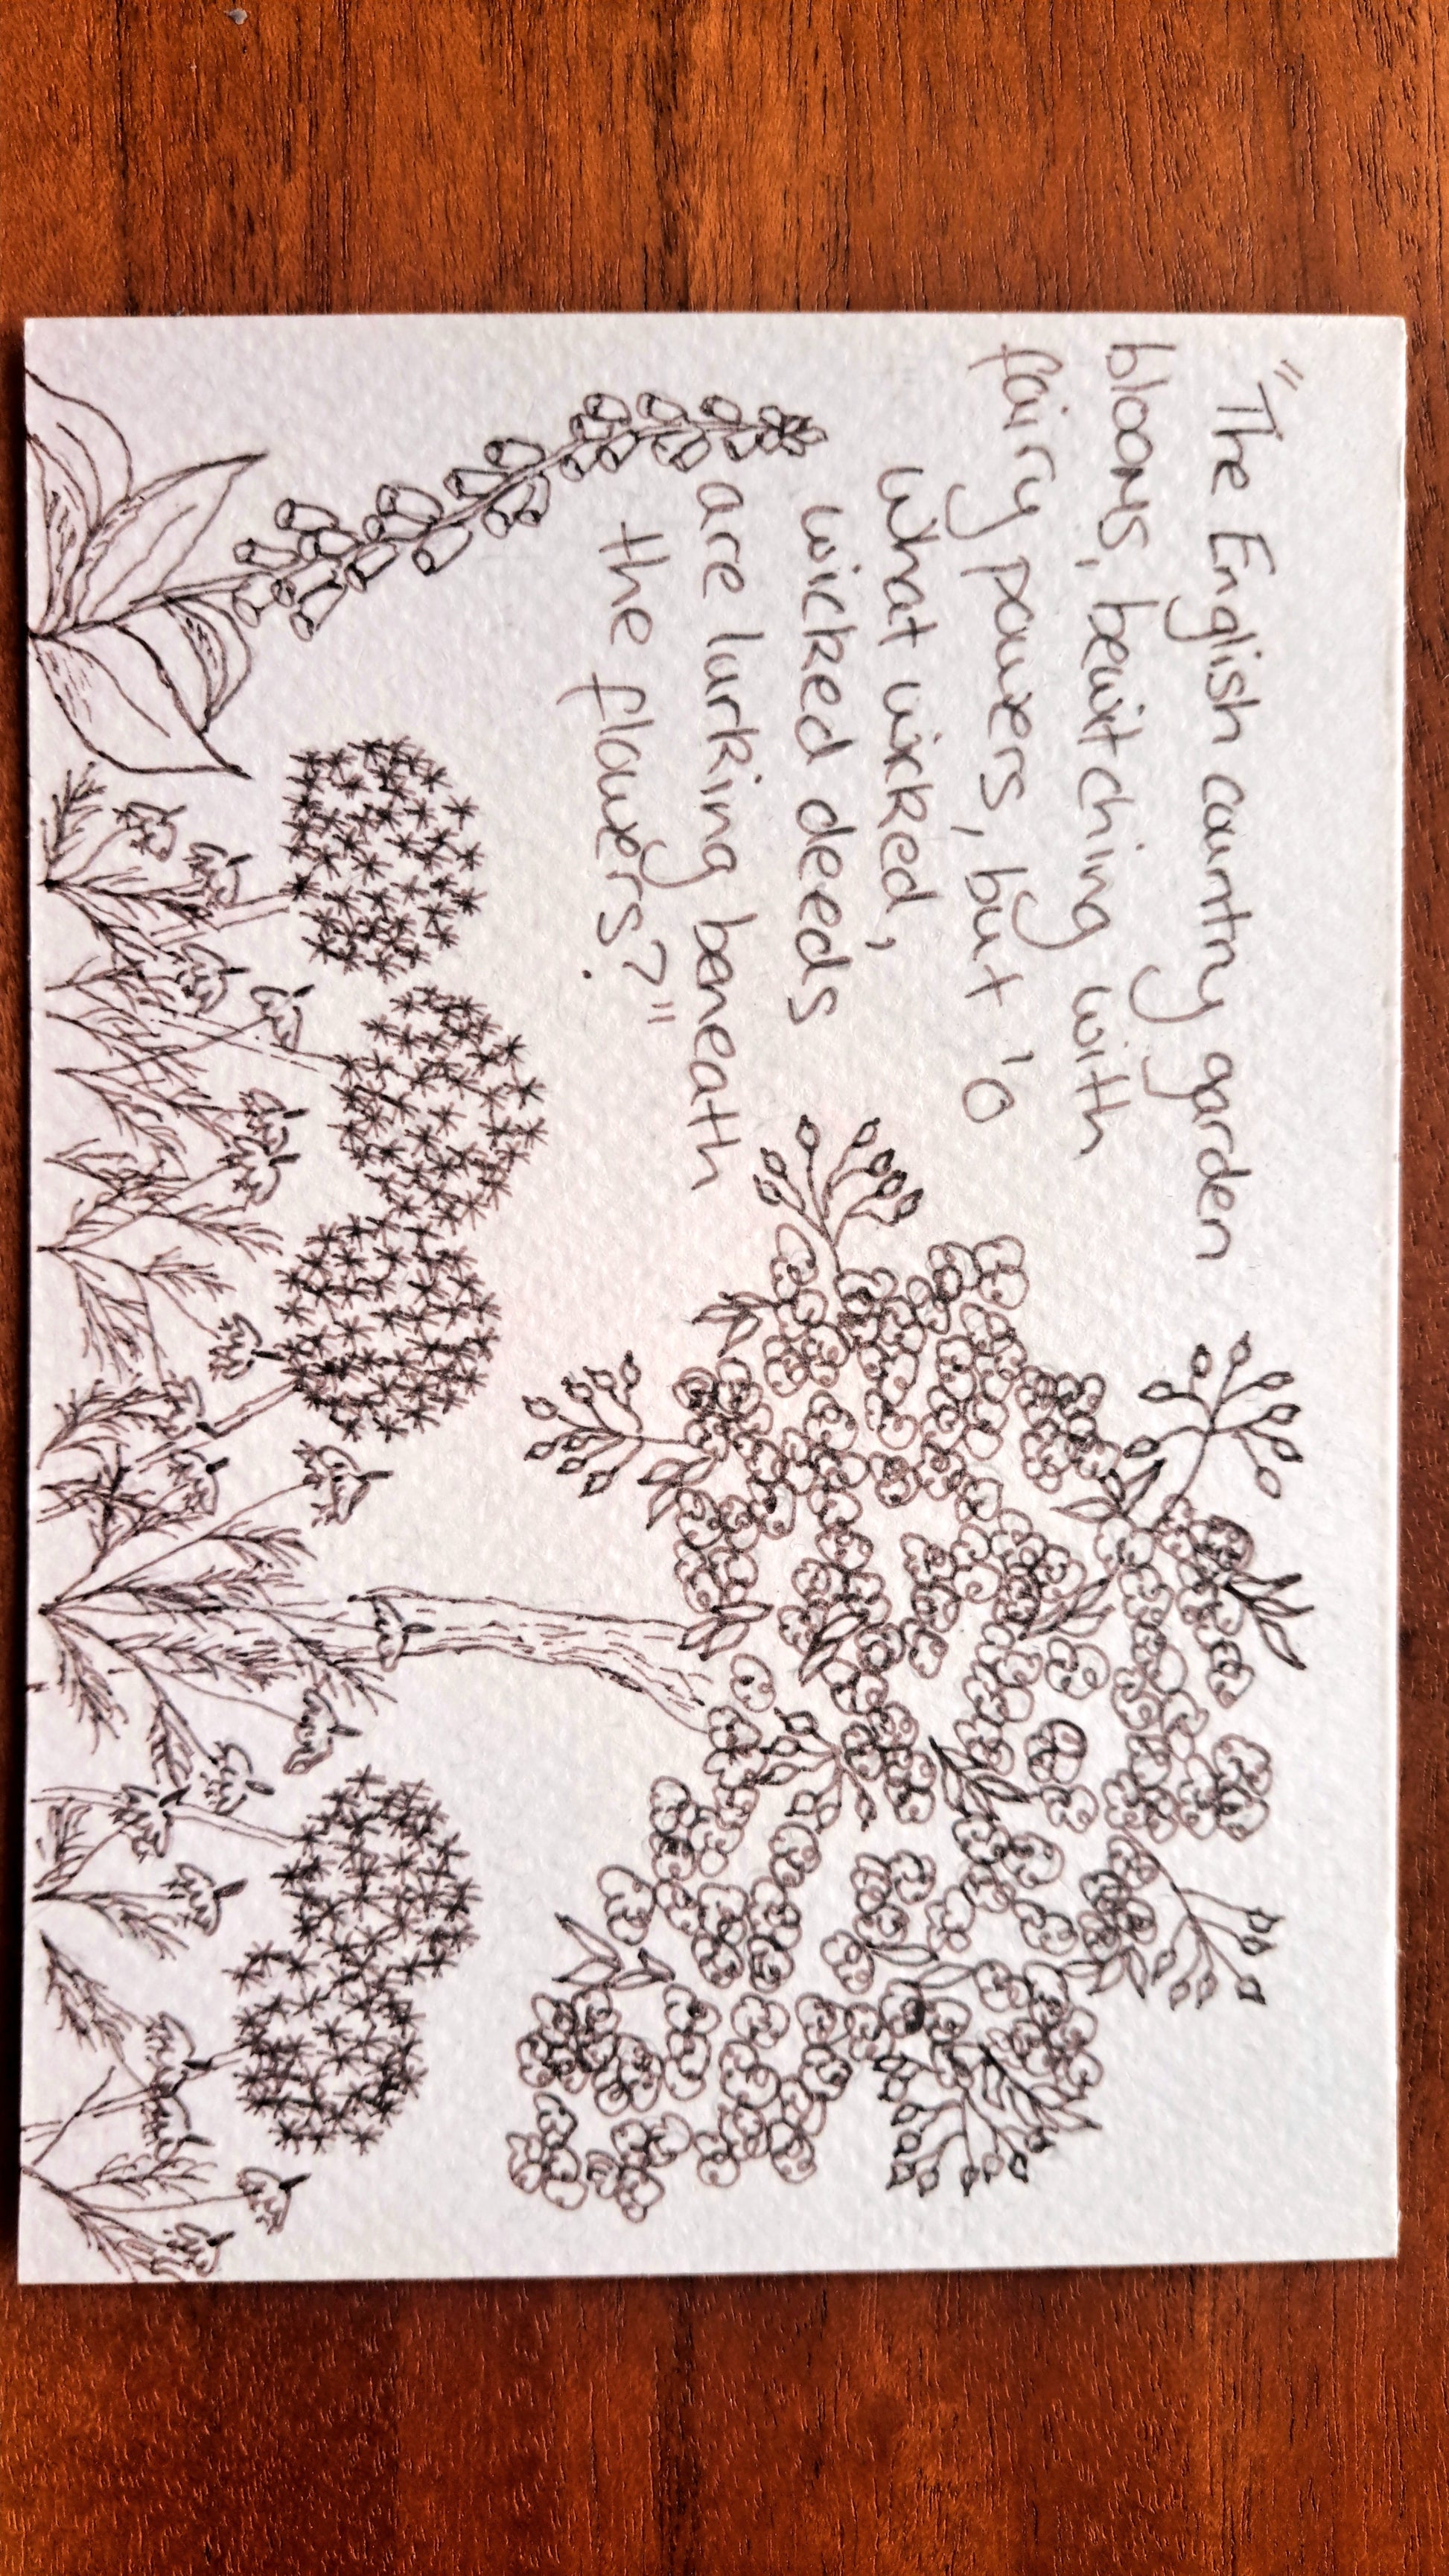 "The English country garden
blooms, bewitching with
fairy powers, but 'o
what wicked,
wicked deeds
are lurking beneath
the flowers?"